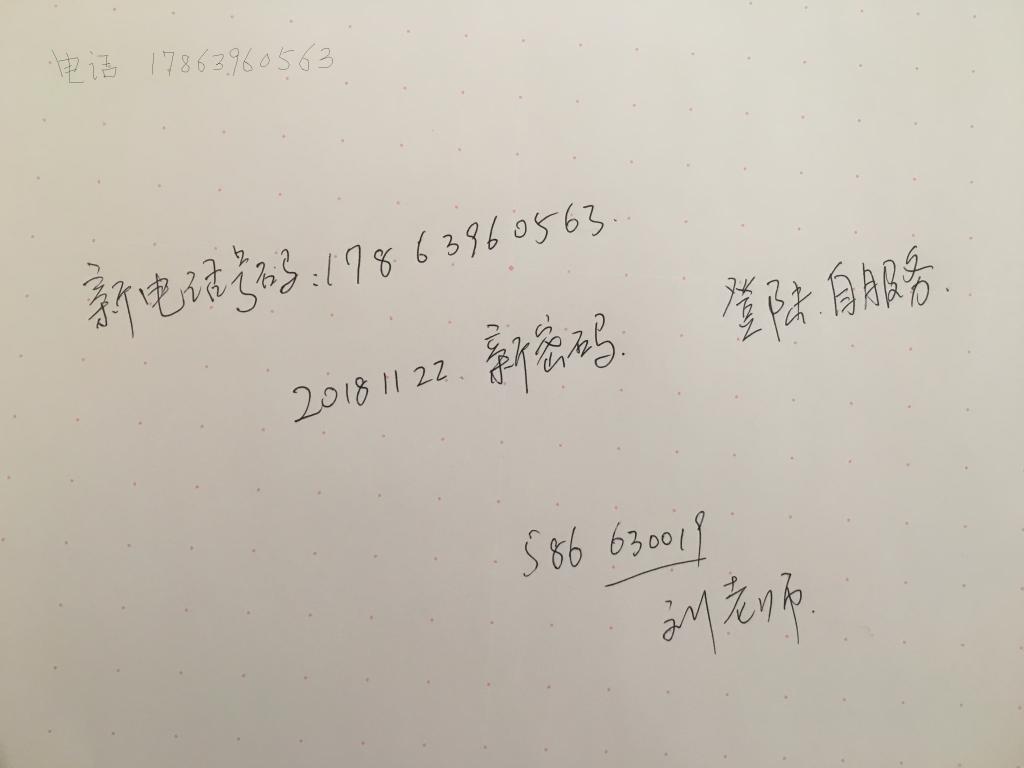 电话 17863960563
新电话号码:17863960563.
登陆.自服务.
20181122.新密码.
586 630019
刘老师.